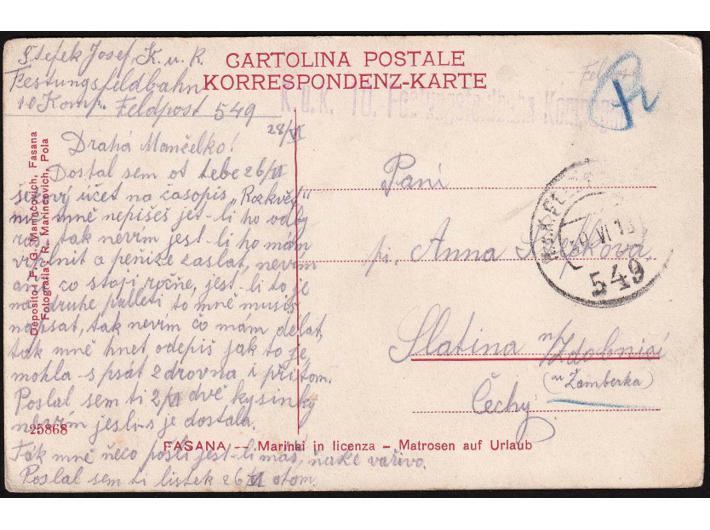 Štefek Josef, K. u. k.
Festungsfeldbahn
10 Komp. Feldpost 549
CARTOLINA POSTALE
KORRESPONDENZ-KARTE
K.u.K. 10. Festungsfeldbahn Komp
28/VI
Drahá Mančelko!
Dostal sem ot tebe 26/VI
účet na časopis „Rozkvět"
mně nepíšeš jest-li ho
tak nevím jest-li ho mám
a peníze zaslat, nevím
ani co stojí ročně, jest-li to je
na druhé to mně musíš
napsat, tak nevím čo mám dělat,
tak mně hnet odepiš jak to je,
mohla-s psát zdrovna i přitom.
Poslal sem ti 2/VI dvě kysinky
nevím jesli-s je dostala.
Tak mně neco pošli jest-li máš, nake vařivo.
Poslal sem ti listek 26 VI otom.
Deposito: F. G. Marincovich, Fasana
Fotografia: R. Marincovich, Pola
25868
Paní
pí. Anna
Slatina n/Zdobnicí
(u Žamberka)
Čechy
VI
549
FASANA — Marinai in licenza – Matrosen auf Urlaub